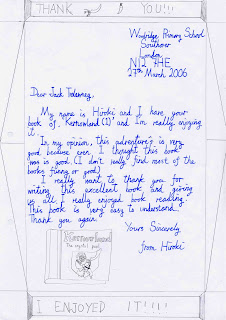 THANK YOU!!!
Primary School
Southover
London
N12 7HE
27th March 2006
Dear Jack Trelawny,
My name is Hiroki and I have your
book of 'Kernowland (1)' and I'm really enjoying
it.
In my opinion, this adventure's is very
good because even I thought this book
was is good. (I don't really find most of the
books funny or good)
I really want to thank you for
writing this excellent book and giving
us all. I really enjoyed book reading.
This book is very easy to understand.
Thank you again.
Yours Sincerely
from Hiroki
Kernowland
The crystal pool
I ENJOYED IT!!!!